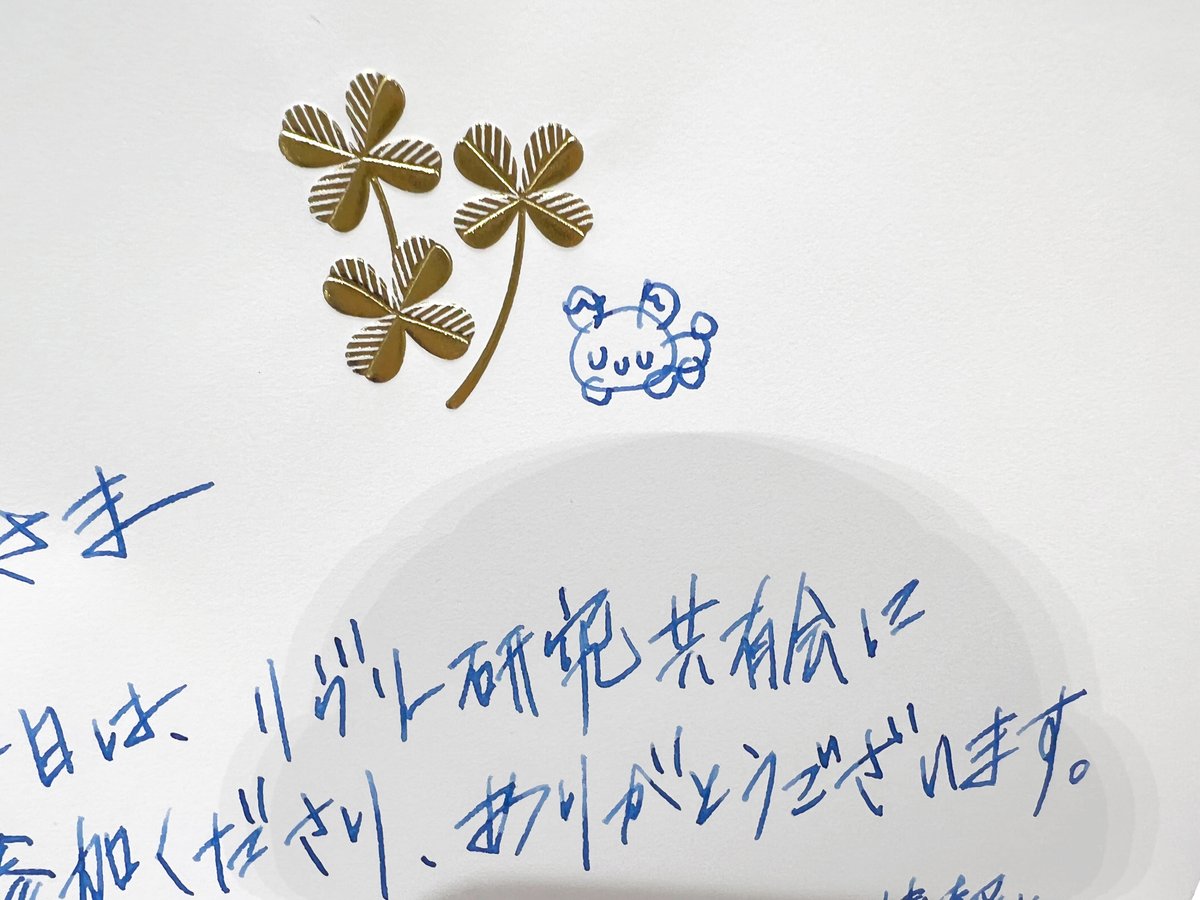 さま
日は、リヴレ研究共有会に
参加くださり、ありがとうございます。